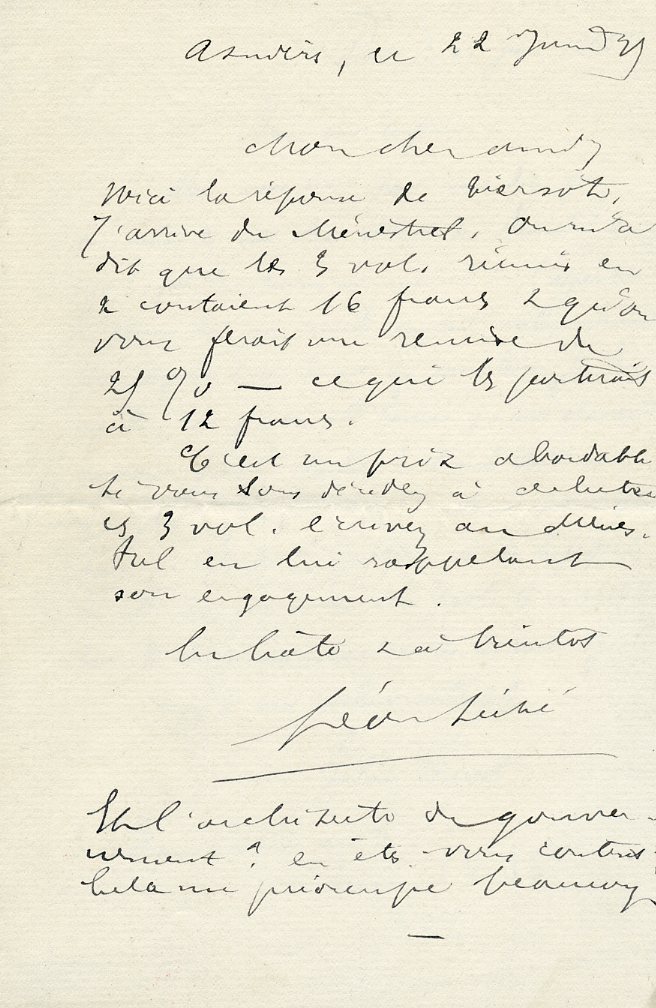 Asnières, le 22 Juin
Mon cher ami
Voici la réponse de Tiersot.
J'arrive du Ménestrel. On m'a
dit que les 3 vol. réunis en
2 coutaient 16 francs & qu'on
vous ferait une remise de
25 % — ce qui les
à 12 francs.
C'est un prix abordable
Si vous vous décidez à acheter
ces 3 vol. écrivez au Ménes-
trel en lui rappelant
son engagement.
En hâte & à bientôt
Léon Séché
Et l'architecte du gouver-
nement ? en êtes vous content
Cela me préoccupe beaucoup
—